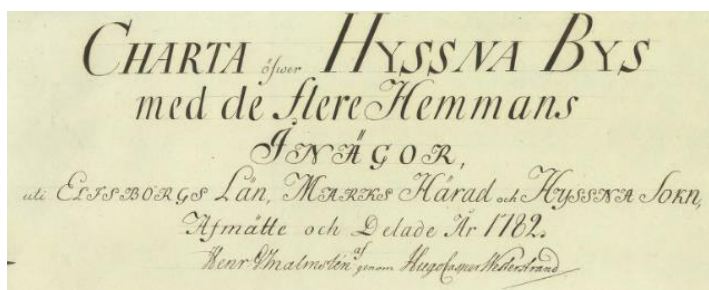 CHARTA öfwer HYSSNA BYS
med de flere Hemmans
INÄGOR,
uti ELFSBORGS Län, MARKS Härad och HYSSNA Sokn,
Afmätte och Delade År 1782.
af
Henr Malmsten genom Hugo Casper Westerstrand